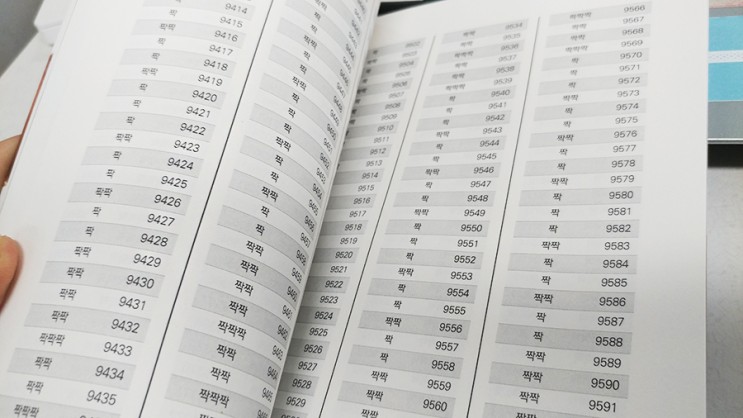 짝 9414
짝 9415
짝짝 9416
짝 9417
짝 9418
짝짝 9419
짝 9420
짝 9421
짝 9422
짝짝 9423
짝 9424
짝 9425
짝짝 9426
짝 9427
짝 9428
짝짝 9429
짝짝 9430
짝짝 9431
짝짝 9432
짝짝짝 9433
짝짝 9434
짝짝 9435
짝 9451
짝 9452
짝짝 9453
짝 9454
짝 9455
짝짝 9456
짝 9457
짝 9458
짝짝 9459
짝짝 9460
짝짝 9461
짝짝 9462
짝짝짝 9463
짝짝 9464
짝짝 9465
9510
9511
9512
9513
9514
9515
9516
9517
9518
9519
9520
9521
9522
9523
9524
9525
9526
9527
9528
9529
짝짝 9534
짝짝 9535
짝짝짝 9536
짝짝 9537
짝짝 9538
짝짝짝 9539
짝 9540
짝 9541
짝 9542
짝짝 9543
짝 9544
짝 9545
짝짝 9546
짝 9547
짝 9548
짝짝 9549
짝 9550
짝 9551
짝 9552
짝짝 9553
짝 9554
짝 9555
짝짝 9556
짝 9557
짝 9558
짝짝 9559
짝짝 9560
짝짝짝 9566
짝짝 9567
짝짝 9568
짝짝짝 9569
짝 9570
짝 9571
짝 9572
짝짝 9573
짝 9574
짝 9575
짝짝 9576
짝 9577
짝 9578
짝짝 9579
짝 9580
짝 9581
짝 9582
짝짝 9583
짝 9584
짝 9585
짝짝 9586
짝 9587
짝 9588
짝짝 9589
짝짝 9590
짝짝 9591